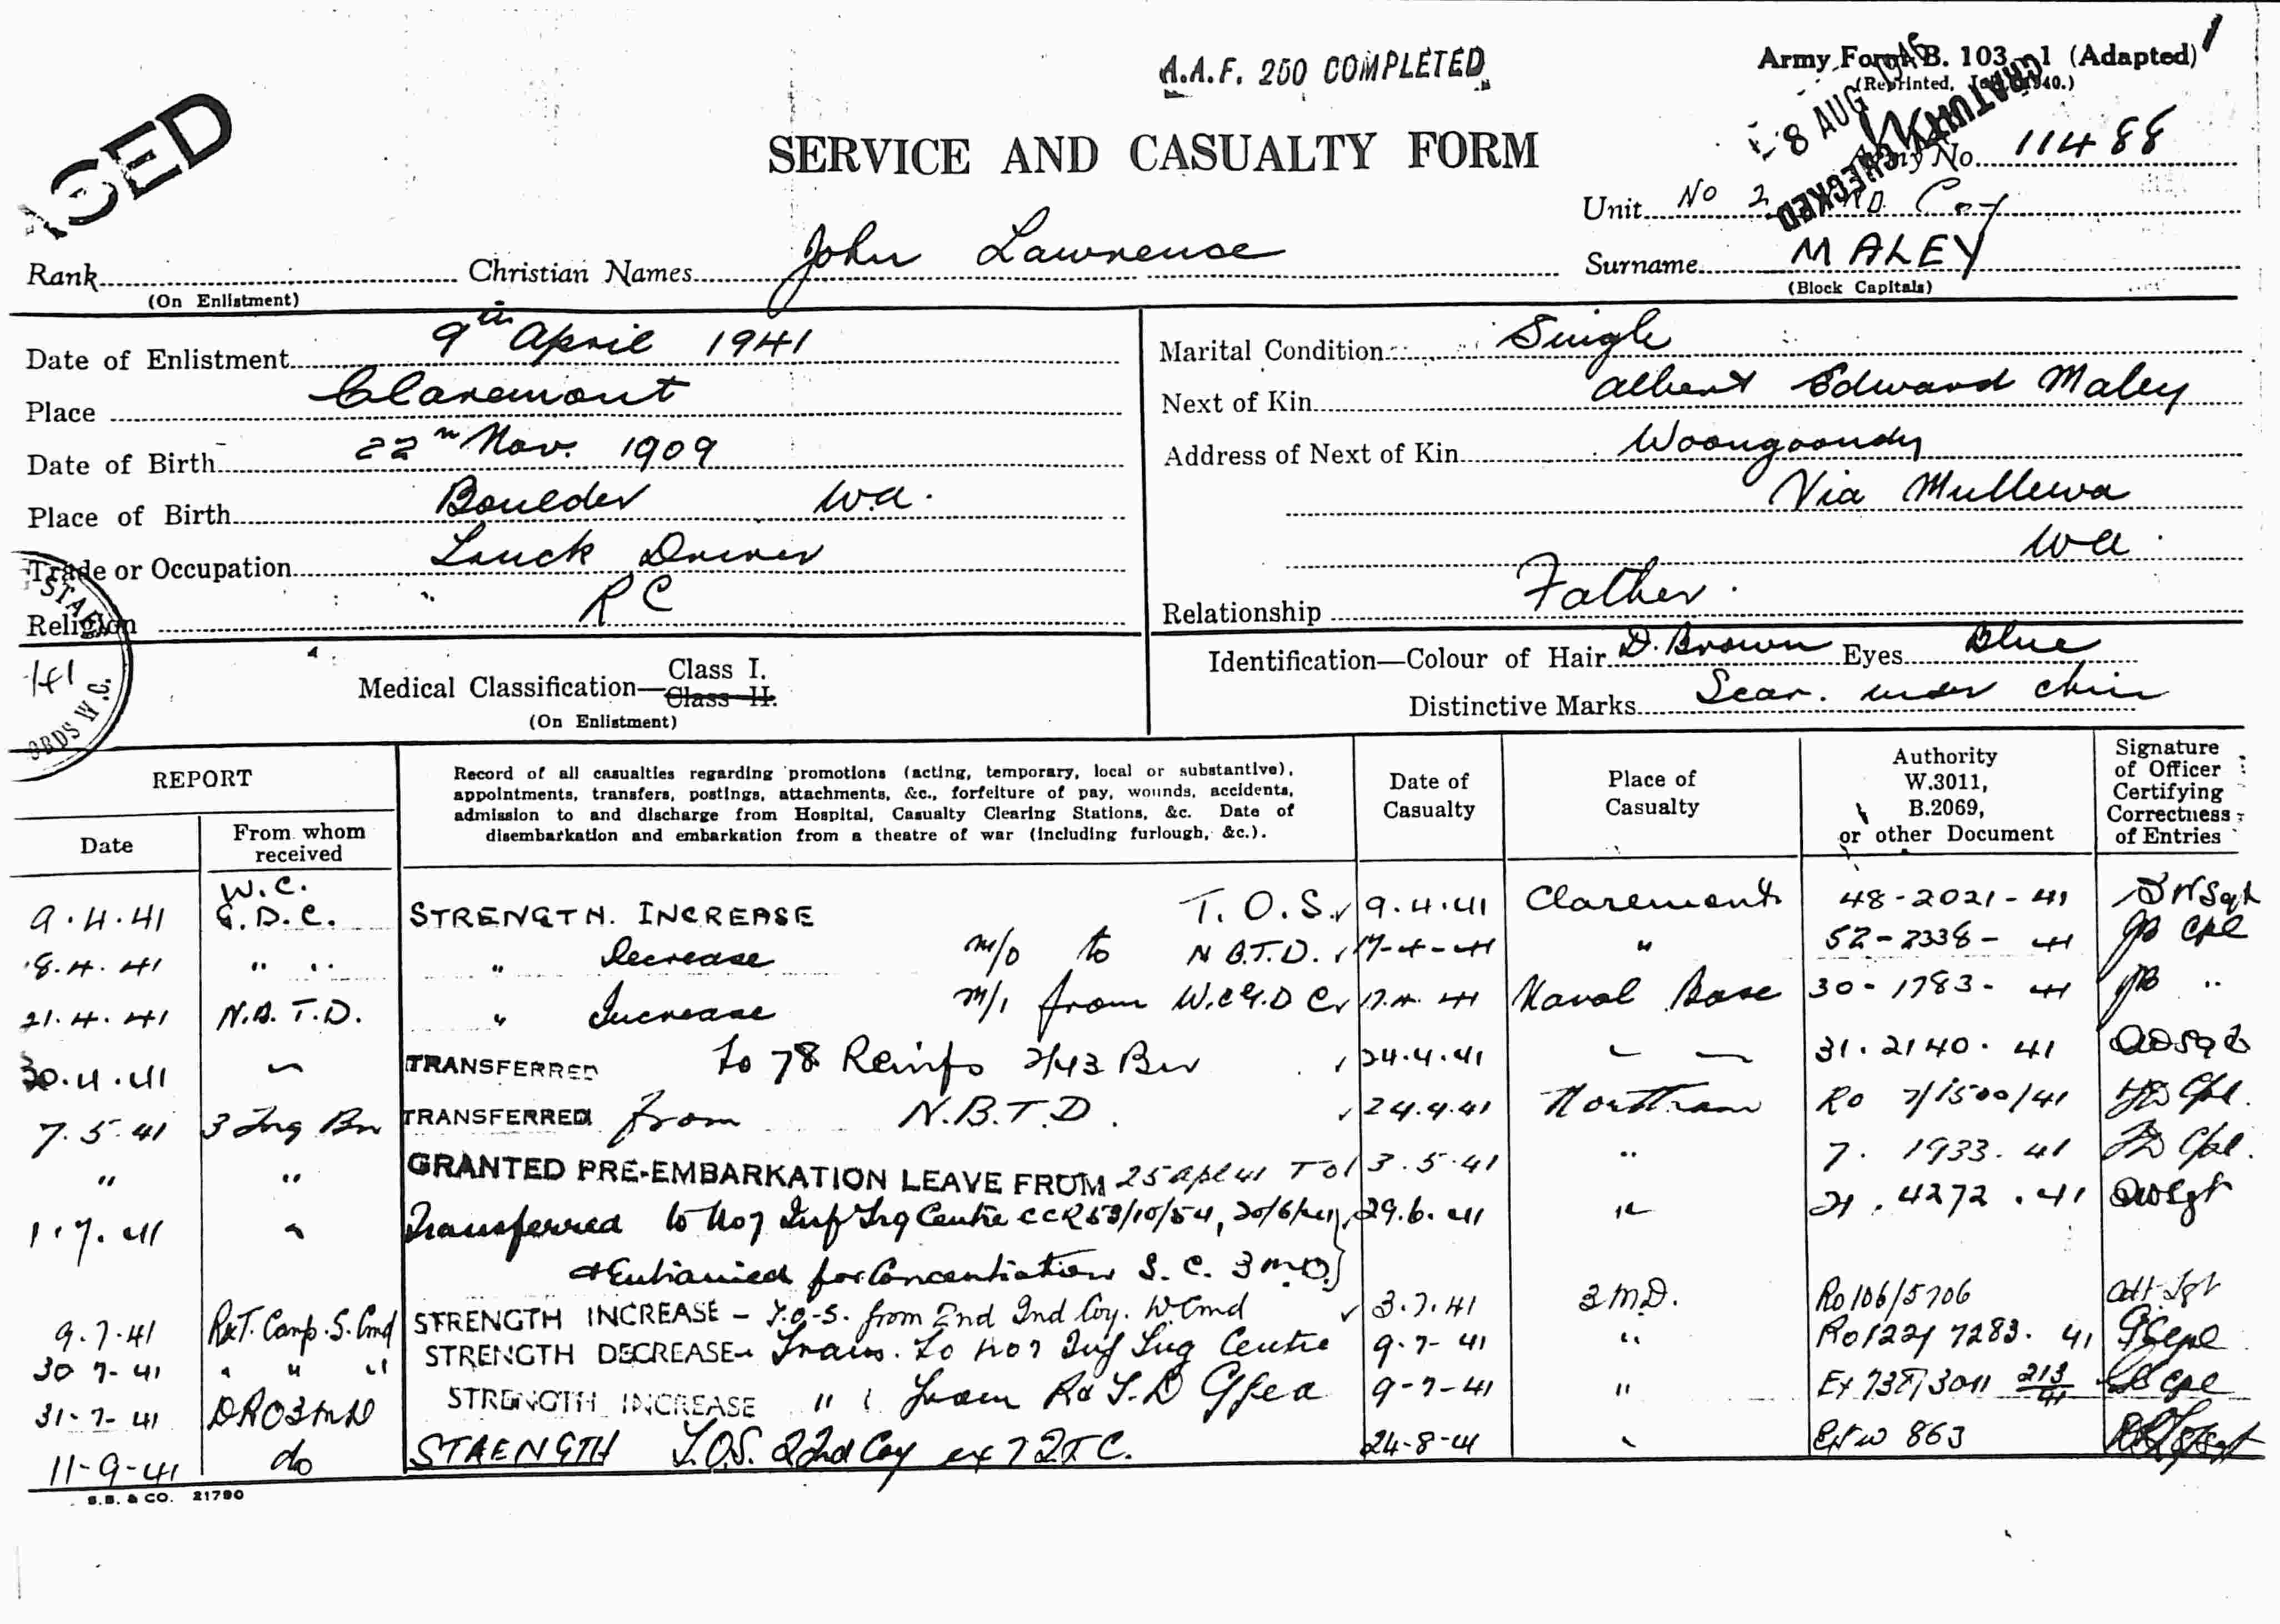 A.A.F. 200 COMPLETED
Army Form B. 103—1 (Adapted)
(Reprinted, 1940.)
8 AUG
CHECKED
SED
SERVICE AND CASUALTY FORM
Army No. 11488
Unit No 2 Coy
Rank Christian Names John Lawrence Surname MALEY
(On Enlistment) (Block Capitals)
Date of Enlistment 9th April 1941
Place Claremont
Date of Birth 22n Nov. 1909
Place of Birth Boulder W.A.
Trade or Occupation Truck Driver
Religion RC
Marital Condition Single
Next of Kin Albert Edward Maley
Address of Next of Kin Woongoondy
Via Mullewa
W.A.
Relationship Father.
STAFF
RDS W.C.
Medical Classification— Class I.
Class II.
(On Enlistment)
Identification—Colour of Hair D. Brown Eyes Blue
Distinctive Marks Scar. under chin
REPORT
Date
From whom received
Record of all casualties regarding promotions (acting, temporary, local or substantive),
appointments, transfers, postings, attachments, &c., forfeiture of pay, wounds, accidents,
admission to and discharge from Hospital, Casualty Clearing Stations, &c. Date of
disembarkation and embarkation from a theatre of war (including furlough, &c.).
Date of Casualty
Place of Casualty
Authority W.3011, B.2069, or other Document
Signature of Officer Certifying Correctness of Entries
9.4.41 W.C. G.D.C. STRENGTH. INCREASE T.O.S. 9.4.41 Claremont 48-2021-41
18.4.41 " " " Decrease m/o to N.B.T.D. 17-4-41 " 52-2338-41 Cpl
21.4.41 N.B.T.D. " Increase m/i from W.C.G.D.C. 17.4.41 Naval Base 30-1783-41 "
30.4.41 " TRANSFERRED to 7&8 Reinfs 2/43 Bn 24.4.41 " " 31.2140.41
7.5.41 3 Trg Bn TRANSFERRED from N.B.T.D. 24.4.41 Northam Ro 7/1500/41 Cpl.
" " GRANTED PRE-EMBARKATION LEAVE FROM 25 Apl 41 TO 3.5.41 " 7. 1933. 41 Cpl.
1.7.41 " Transferred to No 7 Inf Trg Centre CCR 53/10/54, 20/6/41 29.6.41 " 21.4272.41
& Entrained for Concentration S.C. 3 M.D.
9.7.41 R&T. Camp. S. Cmd STRENGTH INCREASE – T.O.S. from 2nd Ind Coy. W Cmd 3.7.41 3 M.D. Ro 106/5706
30 7-41 " " " STRENGTH DECREASE – Trans. to No 7 Inf Trg Centre 9-7-41 " Ro 122/7283. 41
31-7-41 DRO3MD STRENGTH INCREASE " from R&T.D 9-7-41 " 3011 213/41 Cpl
11-9-41 do STRENGTH T.O.S. 2 2nd Coy ex 7 ITC. 24-8-41 " 863
S.B. & CO. 21790